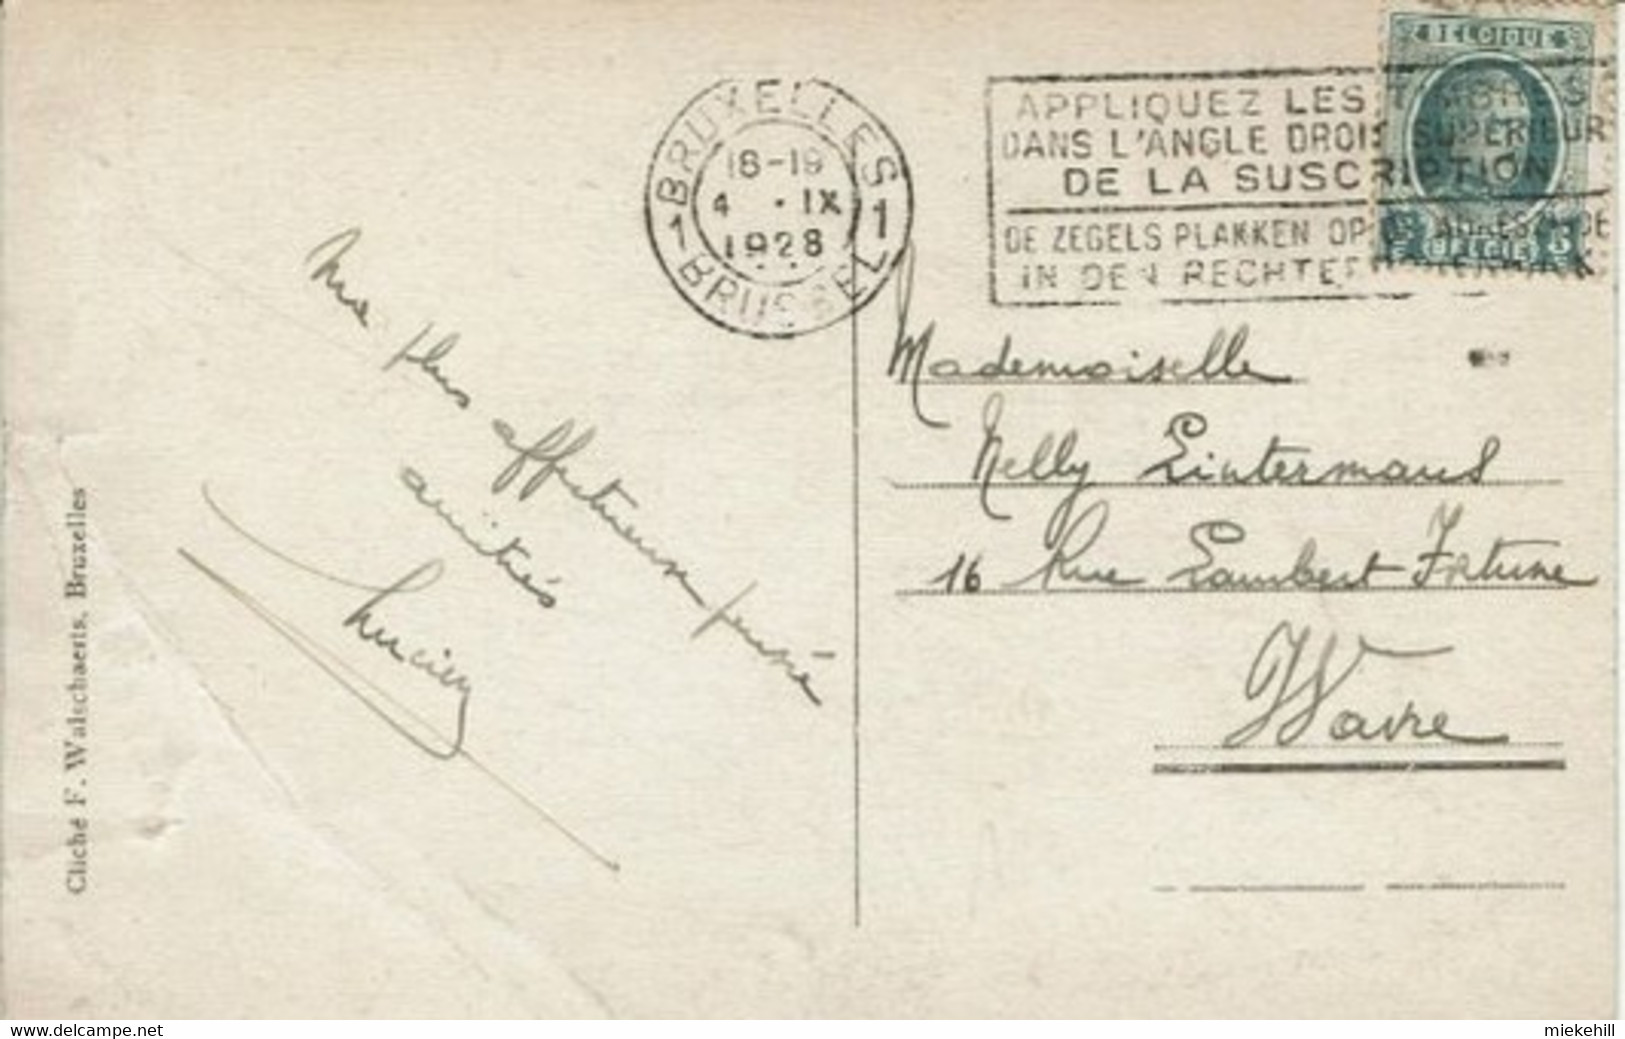 BRUXELLES
18-19
4 . IX
1928
1 1
BRUSSEL
APPLIQUEZ LES TIMBRES
DANS L'ANGLE DROIT SUPERIEUR
DE LA SUSCRIPTION
DE ZEGELS PLAKKEN OP
IN DEN RECHTER
BELGIQUE
BELGIË 5
plus affectueux pensé
amitiés
Lucien
Mademoiselle
Nelly Lintermans
16 Rue Lambert Fortune
Wavre
Cliché F. Walschaerts, Bruxelles
www.delcampe.net
miekehill